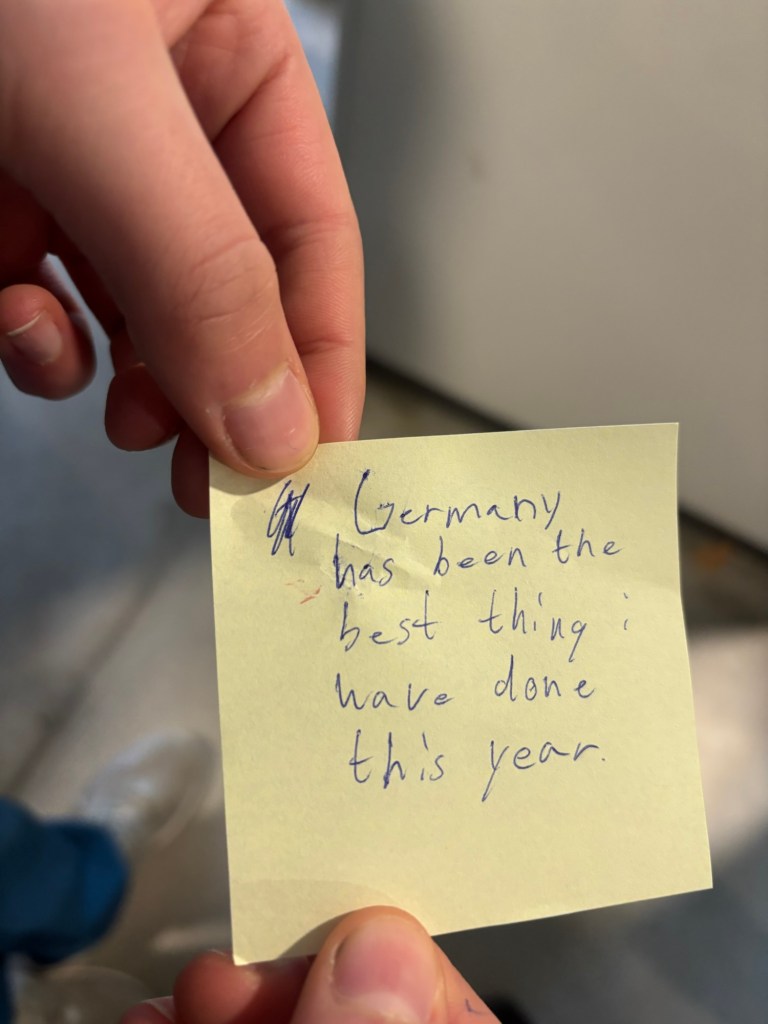 Germany
has been the
best thing i
have done
this year.